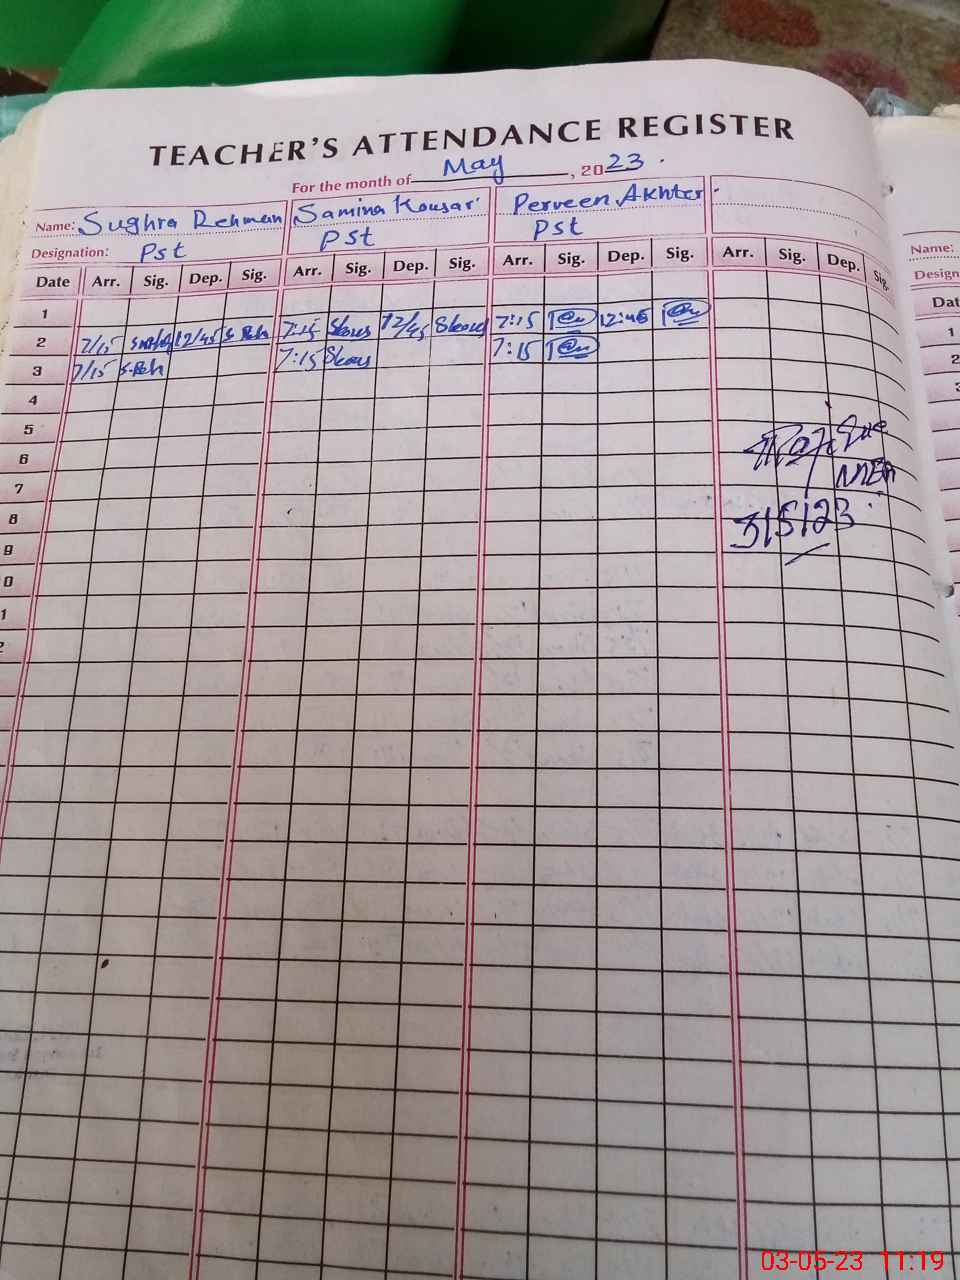 TEACHER'S ATTENDANCE REGISTER
For the month of May, 2023
Name: Sughra Rehman Samina Kousar Perveen Akhter
Designation: Pst Pst Pst
Date Arr. Sig. Dep. Sig. Arr. Sig. Dep. Sig. Arr. Sig. Dep. Sig. Arr. Sig. Dep. Sig.
1
2 7/15 12/45 S Reh 7:15 Skous 12/45 Skous 7:15 12:45
3 7/15 S.Reh 7:15 Skous 7:15
4
5
6
7
8
9
0
1
2
MEA
3/5/23
Name:
Design
Dat
1
2
3
03-05-23 11:19